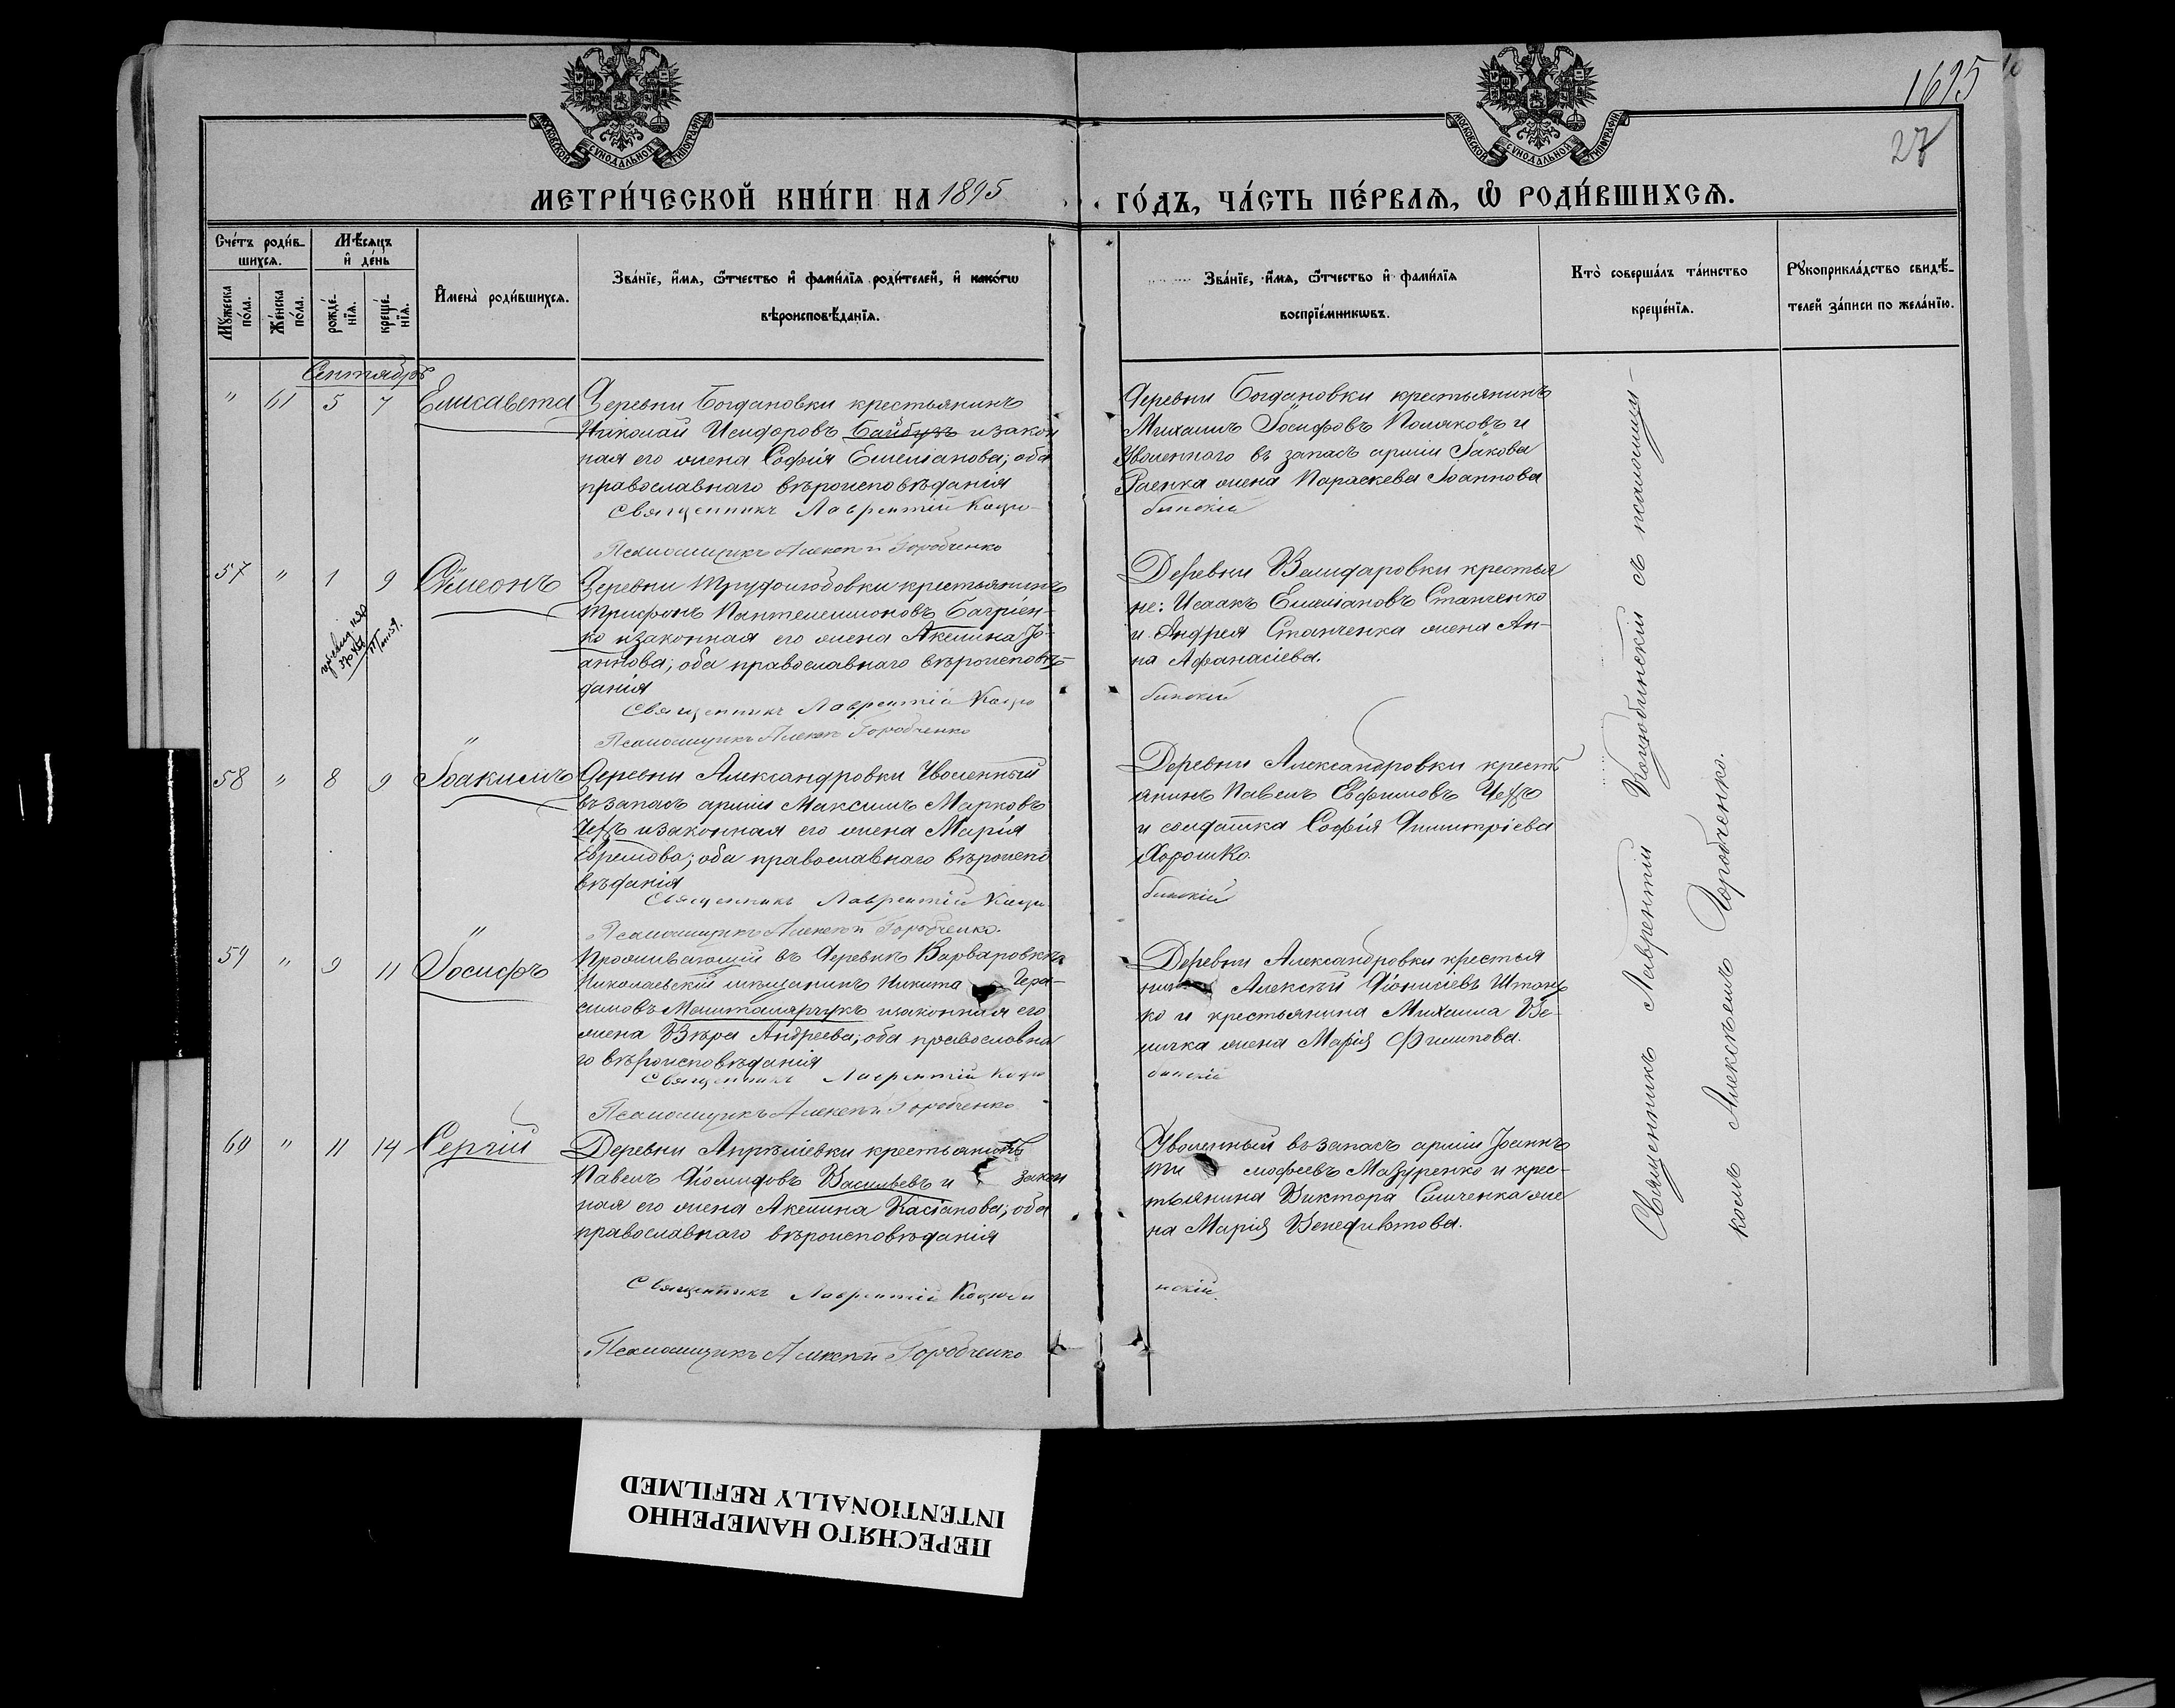 1695
27
МОСКОВСКОЙ СѴНОДАЛЬНОЙ ТИПОГРАФІИ
МОСКОВСКОЙ СѴНОДАЛЬНОЙ ТИПОГРАФІИ
МЕТРИ́ЧЕСКОЙ КНИ́ГИ НА 1895 ГО́ДЪ, ЧА́СТЬ ПЕ́РВАѦ, Ѡ РОДИ́ВШИХСѦ.
Сче́тъ роди́в-
шихсѧ.
Мꙋ́жеска по́ла.
Же́нска по́ла.
Мѣ́сѧцъ и҆ де́нь
рожде́-нїѧ.
креще́-нїѧ.
И҆мена̀ роди́вшихсѧ.
Зва́нїе, и҆́мѧ, ѻ҆́тчество и҆ фами́лїѧ роди́телей, и҆ како́гѡ
вѣроисповѣ́данїѧ.
Зва́нїе, и҆́мѧ, ѻ҆́тчество и҆ фами́лїѧ
воспрїе́мникѡвъ.
Кто̀ соверша́лъ та́инство
креще́нїѧ.
Рꙋкоприкла́дство свидѣ́-
телей за́писи по жела́нїю.
Сентябрь
" 61 5 7 Елисавета
Деревни Богдановки крестьянинъ
Николай Исидоровъ Байбузъ и закон
ная его жена Софія Емеліанова; оба
православнаго вѣроисповѣданія
Священникъ Лаврентій Коцю-
Псаломщикъ Алексѣй Горобченко
Деревни Богдановки крестьянинъ
Михаилъ Іосифовъ Поляковъ и
Уволеннаго въ запасъ арміи Іакова
Раенка жена Параскева Іоаннова
бинскій
57 " 1 9 Сѵмеонъ
Деревни Трифонюбовки крестьянинъ
Трифонъ Пантелеимоновъ Багрiен-
ко и законная его жена Акелина Іо-
аннова; оба православнаго вѣроисповѣ-
данія
Священникъ Лаврентій Коцю
Псаломщикъ Алексѣй Горобченко
Деревни Велидаровки крестья
не: Исаакъ Емеліановъ Станченко
и Андрея Станченка жена Ан-
на Афанасіева.
бинскій
58 " 8 9 Іоакимъ
Деревни Александровки Уволенный
въ запасъ арміи Максимъ Марковъ
и законная его жена Марія
Ефремова; оба православнаго вѣроиспо
вѣданія
Священникъ Лаврентій Коцю
Псаломщикъ Алексѣй Горобченко.
Деревни Александровки кресть
янинъ Павелъ Евфимовъ
и солдатка Софія Димитріева
Хорошко.
бинскій
59 " 9 11 Іосифъ
Проживающій въ Деревнѣ Варваровкѣ
Николаевскій мѣщанинъ Никита Гера-
симовъ Машталярчукъ и законная его
жена Вѣра Андреева; оба православна
го вѣроисповѣданія
Священникъ Лаврентій Коцю
Псаломщикъ Алексѣй Горобченко
Деревни Александровки крестья
нинъ Алексѣй Діонисіевъ Штонь
ко и крестьянина Михаила Ве-
лика жена Марія Филипова.
бинскій
60 " 11 14 Сергій
Деревни Андрѣіевки крестьянинъ
Павелъ Діомидовъ Васильевъ и закон
ная его жена Акелина Касіанова; оба
православнаго вѣроисповѣданія
Священникъ Лаврентій Коцюби
Псаломщикъ Алексѣй Горобченко
Уволенный въ запасъ арміи Іоаннъ
Ти мофеевъ Мазуренко и крес-
тьянина Виктора Симченка же
на Марія Венедиктова.
нскій.
Священникъ Лаврентій Коцюбинскій съ псаломщи-
комъ Алексѣемъ Горобченко.
ПЕРЕСНЯТО НАМЕРЕННО
INTENTIONALLY REFILMED